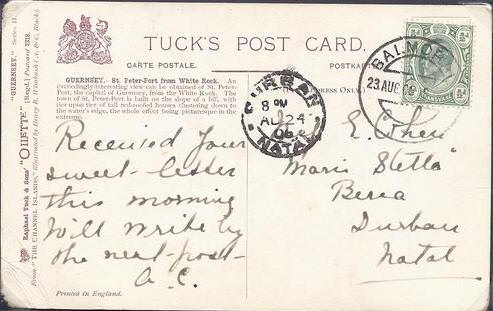 TUCK'S POST CARD.
CARTE POSTALE.
POSTKAR
GUERNSEY.—St. Peter-Port from White Rock. An
exceedingly interesting view can be obtained of St. Peter-
Port, the capital of Guernsey, from the White Rock. The
town of St. Peter-Port is built on the slope of a hill, with
tier upon tier of tiled red-roofed houses clustering down to
water's edge, the whole effect being picturesque in the
extreme.
PRESS ONLY.)
Received your
sweet-letter
this morning
Will write by
the next post-
A.C.
Printed in England.
E. Chen
Maris Stella"
Berea
Durban
Natal
DURBAN
8 PM
AU 24
06
NATAL
BALMO
23 AUG 0
Raphael Tuck & Sons' "OILETTE" [Regd.] Postcard 7218.
From "THE CHANNEL ISLANDS,"
"GUERNSEY." Series II.